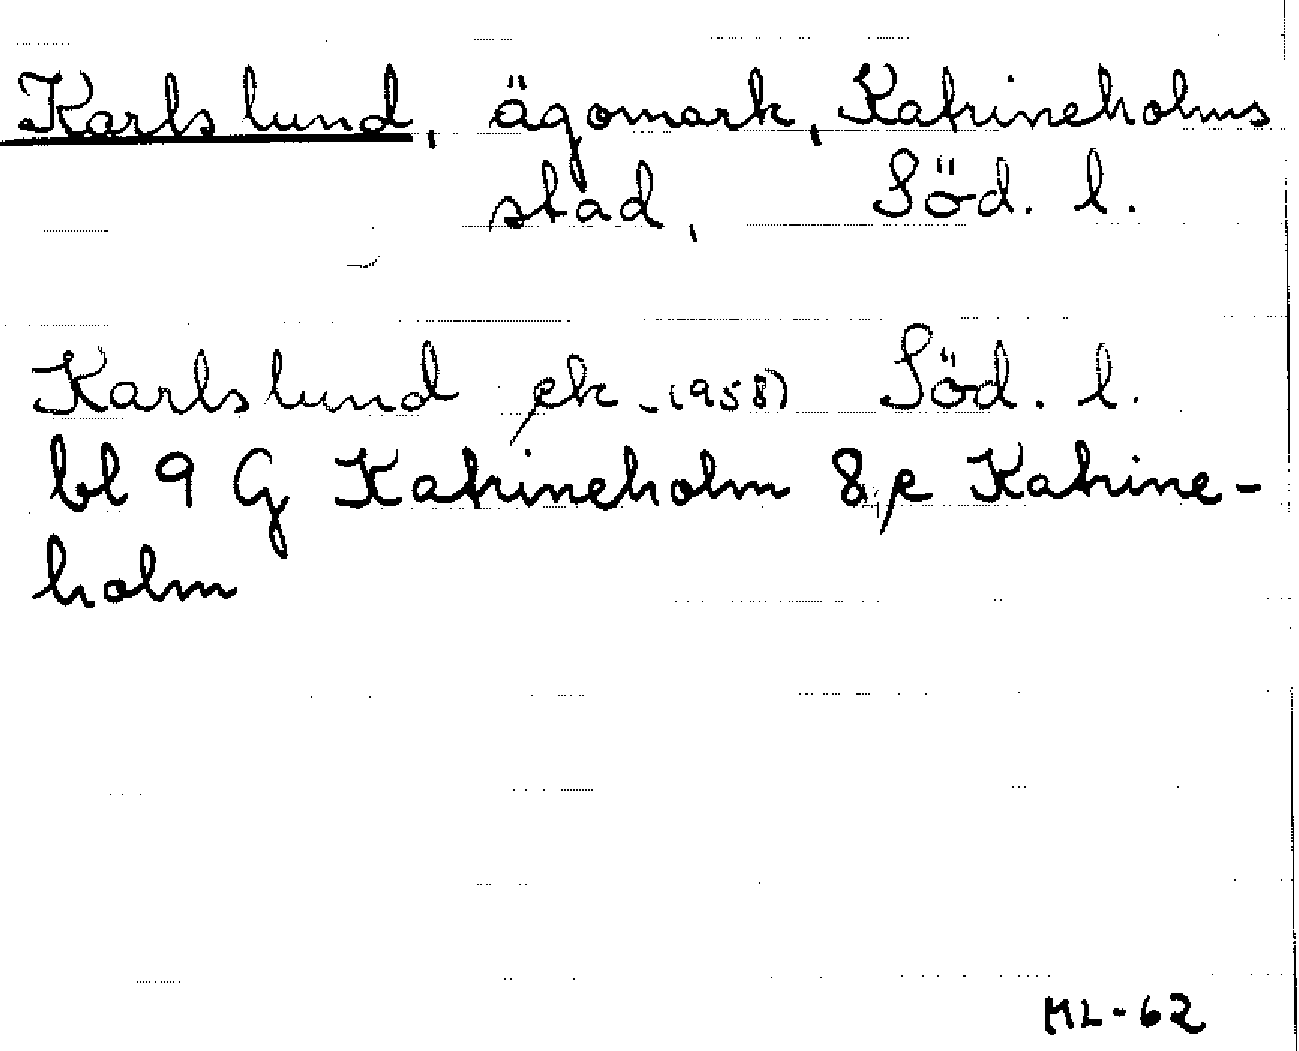 Karlslund, ägomark, Katrineholms
stad, Söd. l.
Karlslund ek -(1958) Söd. l.
bl 9 G Katrineholm 8 e Katrine-
holm
ML-62